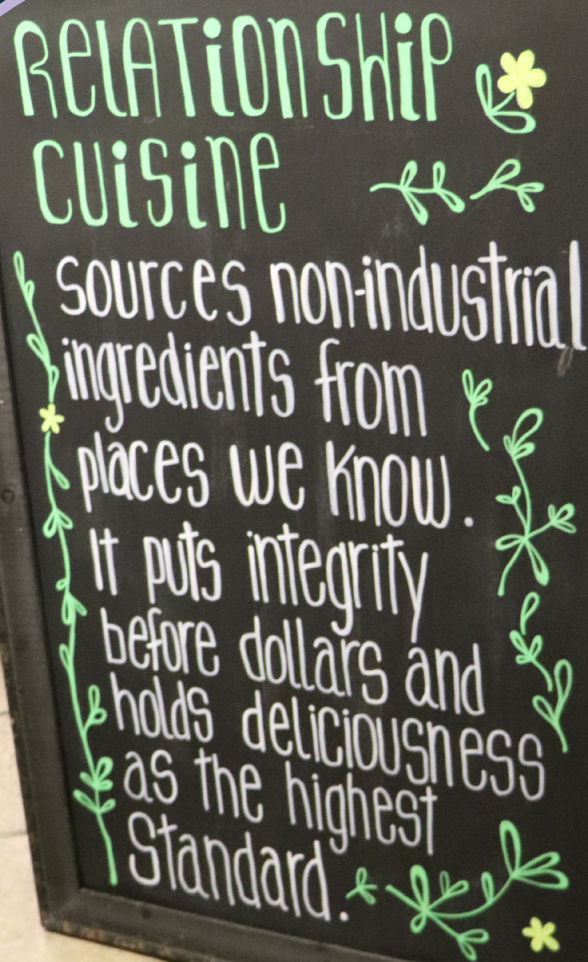 RELATIONSHIP
CUISINE
sources non-industrial
ingredients from
places we know.
It puts integrity
before dollars and
holds deliciousness
as the highest
Standard.